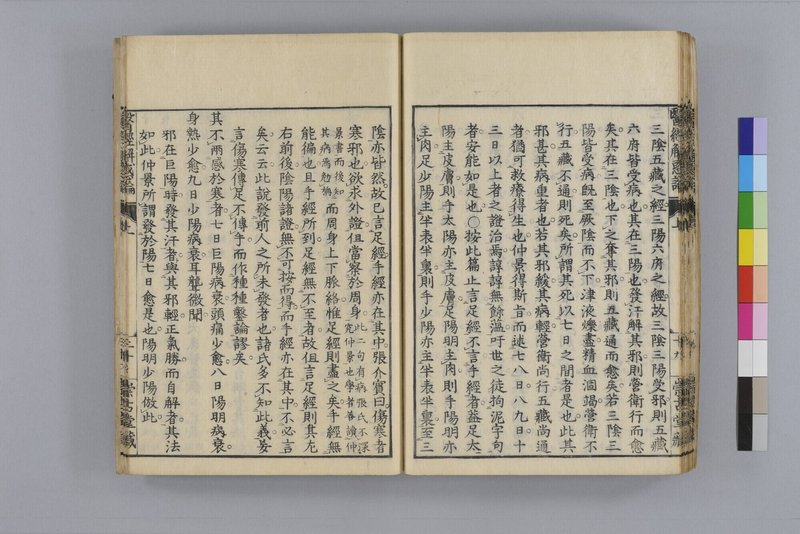 三陰五藏之經三陽六府之經故三陰三陽受邪則五藏
六府皆受病也其在三陽也發汗解其邪則營衛行而愈
矣其在三陰也下之奪其邪則五藏通而愈矣若三陰三
陽皆受病既至厥陰而不下津液爍盡精血涸竭營衛不
行五藏不通則死矣所謂其死以七日之間者是也此其
邪甚其病重者也若其邪緩其病輕營衛尚行五藏尚通
者猶可救療得生也仲景得斯旨而述七八日八九日十
三日以上者之證治焉諄諄無餘溫吁世之徒拘泥字句
者安能如是也○按此篇止言足經不言手經者益足太
陽主皮膚則手太陽亦主皮膚足陽明主肉則手陽明亦
主肉足少陽主半表半裏則手少陽亦主半表半裏至三
陰亦皆然故已言足經手經亦在其中張介賓曰傷寒者
寒邪也欲求外證但當察於周身此二句有病張氏不深
究仲景也學者善讀仲
景書而後知
其病為勉病而周身上下脈絡惟足經則盡之矣手經無
能徧也且手經所到足經無不至者故但言足經則其左
右前後陰陽諸證無不可按而得而手經亦在其中不必言
矣云云此說發前人之所未發者也諸氏多不知此義妄
言傷寒傳足不傳手而作種種鑿論謬矣
其不兩感於寒者七日巨陽病衰頭痛少愈八日陽明病衰
身熱少愈九日少陽病衰耳聾微聞
邪在巨陽時發其汗者與其邪輕正氣勝而自解者其法
如此仲景所謂發於陽七日愈是也陽明少陽倣此